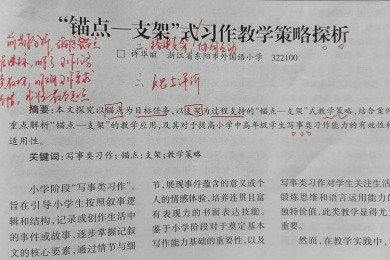 “锚点—支架”式习作教学策略探析
□ 许华丽 浙江省东阳市外国语小学 322100
摘要:本文探究以锚点为目标任务,以支架为过程支持的“锚点—支架”式教学策略,结合案例
重点解析“锚点—支架”的教学应用,及其对于提高小学中高年级学生写事类习作能力的有效性和
适用性。
关键词:写事类习作;锚点;支架;教学策略
小学阶段“写事类习作”,
旨在引导小学生按照叙事逻
辑和结构,记录或创作生活中
的事件或故事,逐步掌握记叙
文的核心要素,通过情节与细
节,展现事件蕴含的意义或个
人的情感体验,培养连贯且富
有表现力的书面表达技能。
鉴于小学阶段对于奠定基本
写作能力基础的重要性,以及
写事类习作对学生关注生活
锻炼思维和语言运用能力的
独特价值,此类教学显得尤为
重要。
然而,在教学实践中,